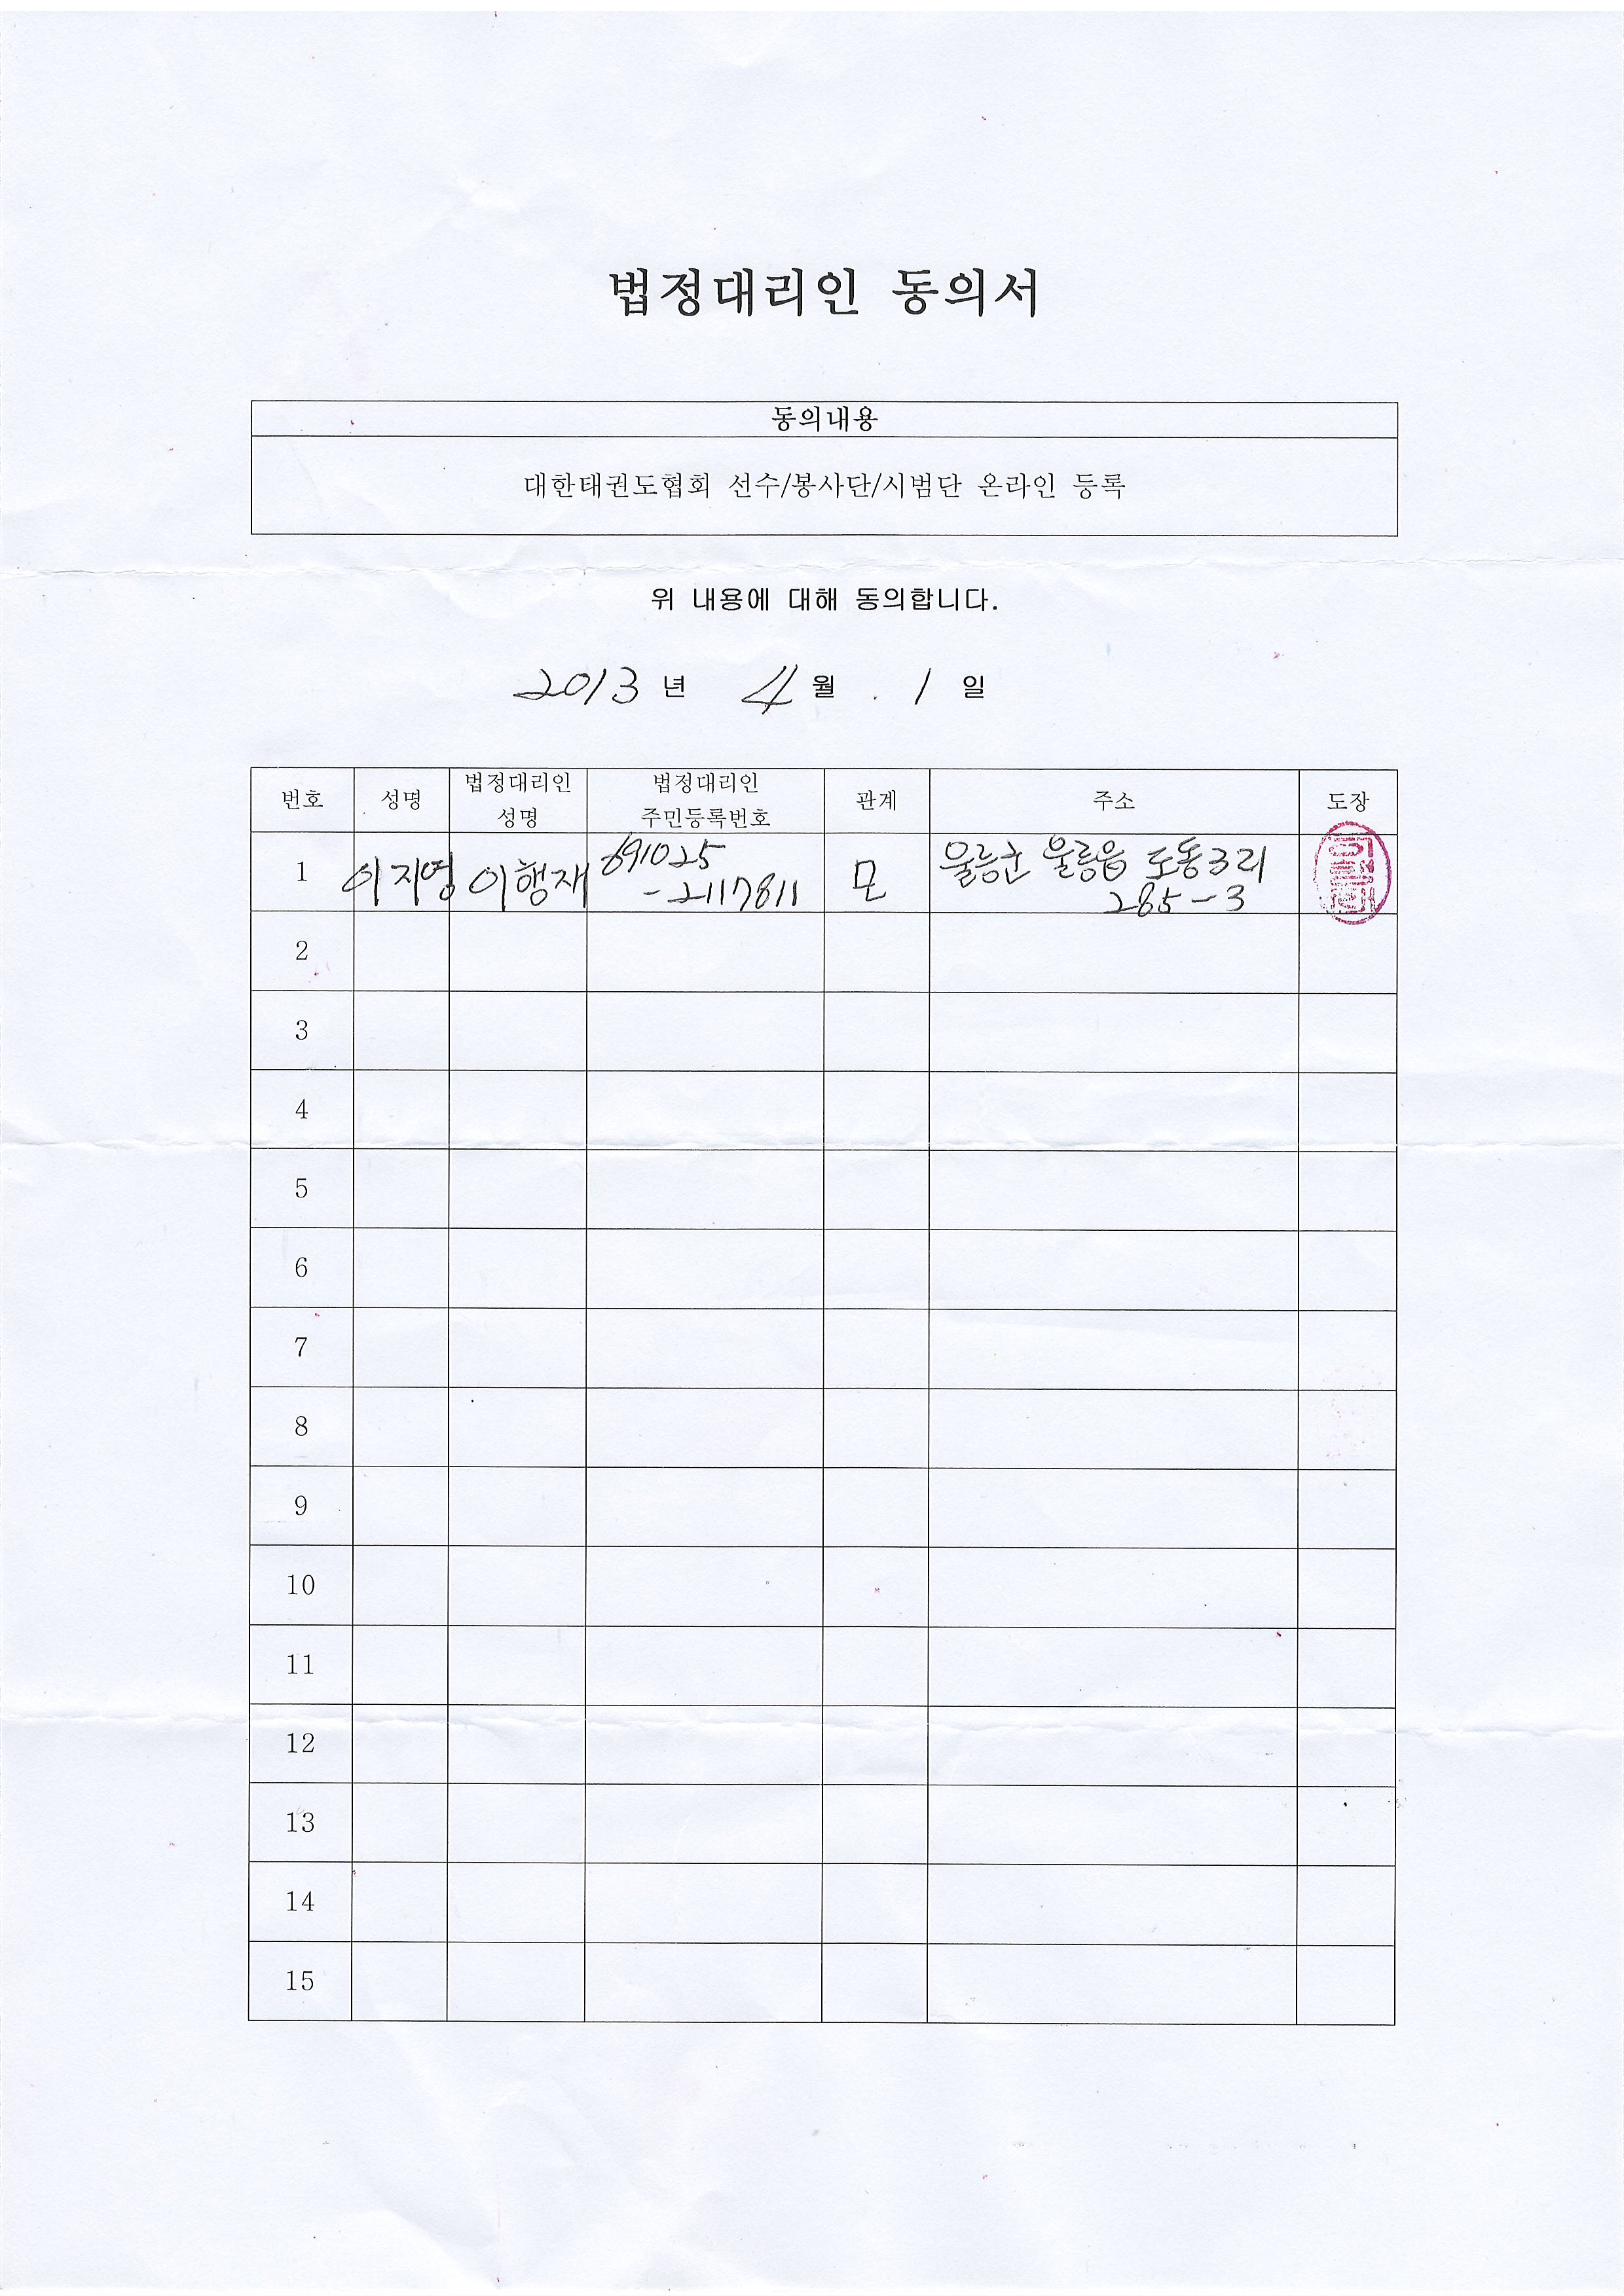 법정대리인 동의서
동의내용
대한태권도협회 선수/봉사단/시범단 온라인 등록
위 내용에 대해 동의합니다.
2013 년 4 월 . 1 일
번호 성명 법정대리인 성명 법정대리인 주민등록번호 관계 주소 도장
1 이지영 이행재 691025 -2117811 모 울릉군 울릉읍 도동3리 285-3
2
3
4
5
6
7
8
9
10
11
12
13
14
15